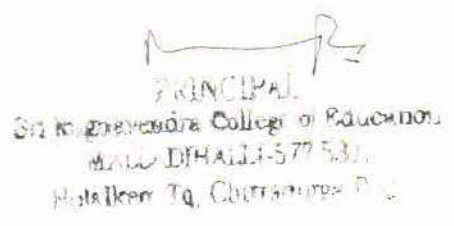 PRINCIPAL
Sri Raghavendra College of Education
MALLADIHALLI-577 531
Holalkere Tq, Chitradurga